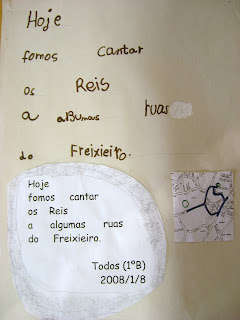 Hoje
fomos cantar
os Reis
a albumas ruas
do Freixieiro.
Hoje
fomos cantar
os Reis
a algumas ruas
do Freixieiro.
Todos (1ºB)
2008/1/8